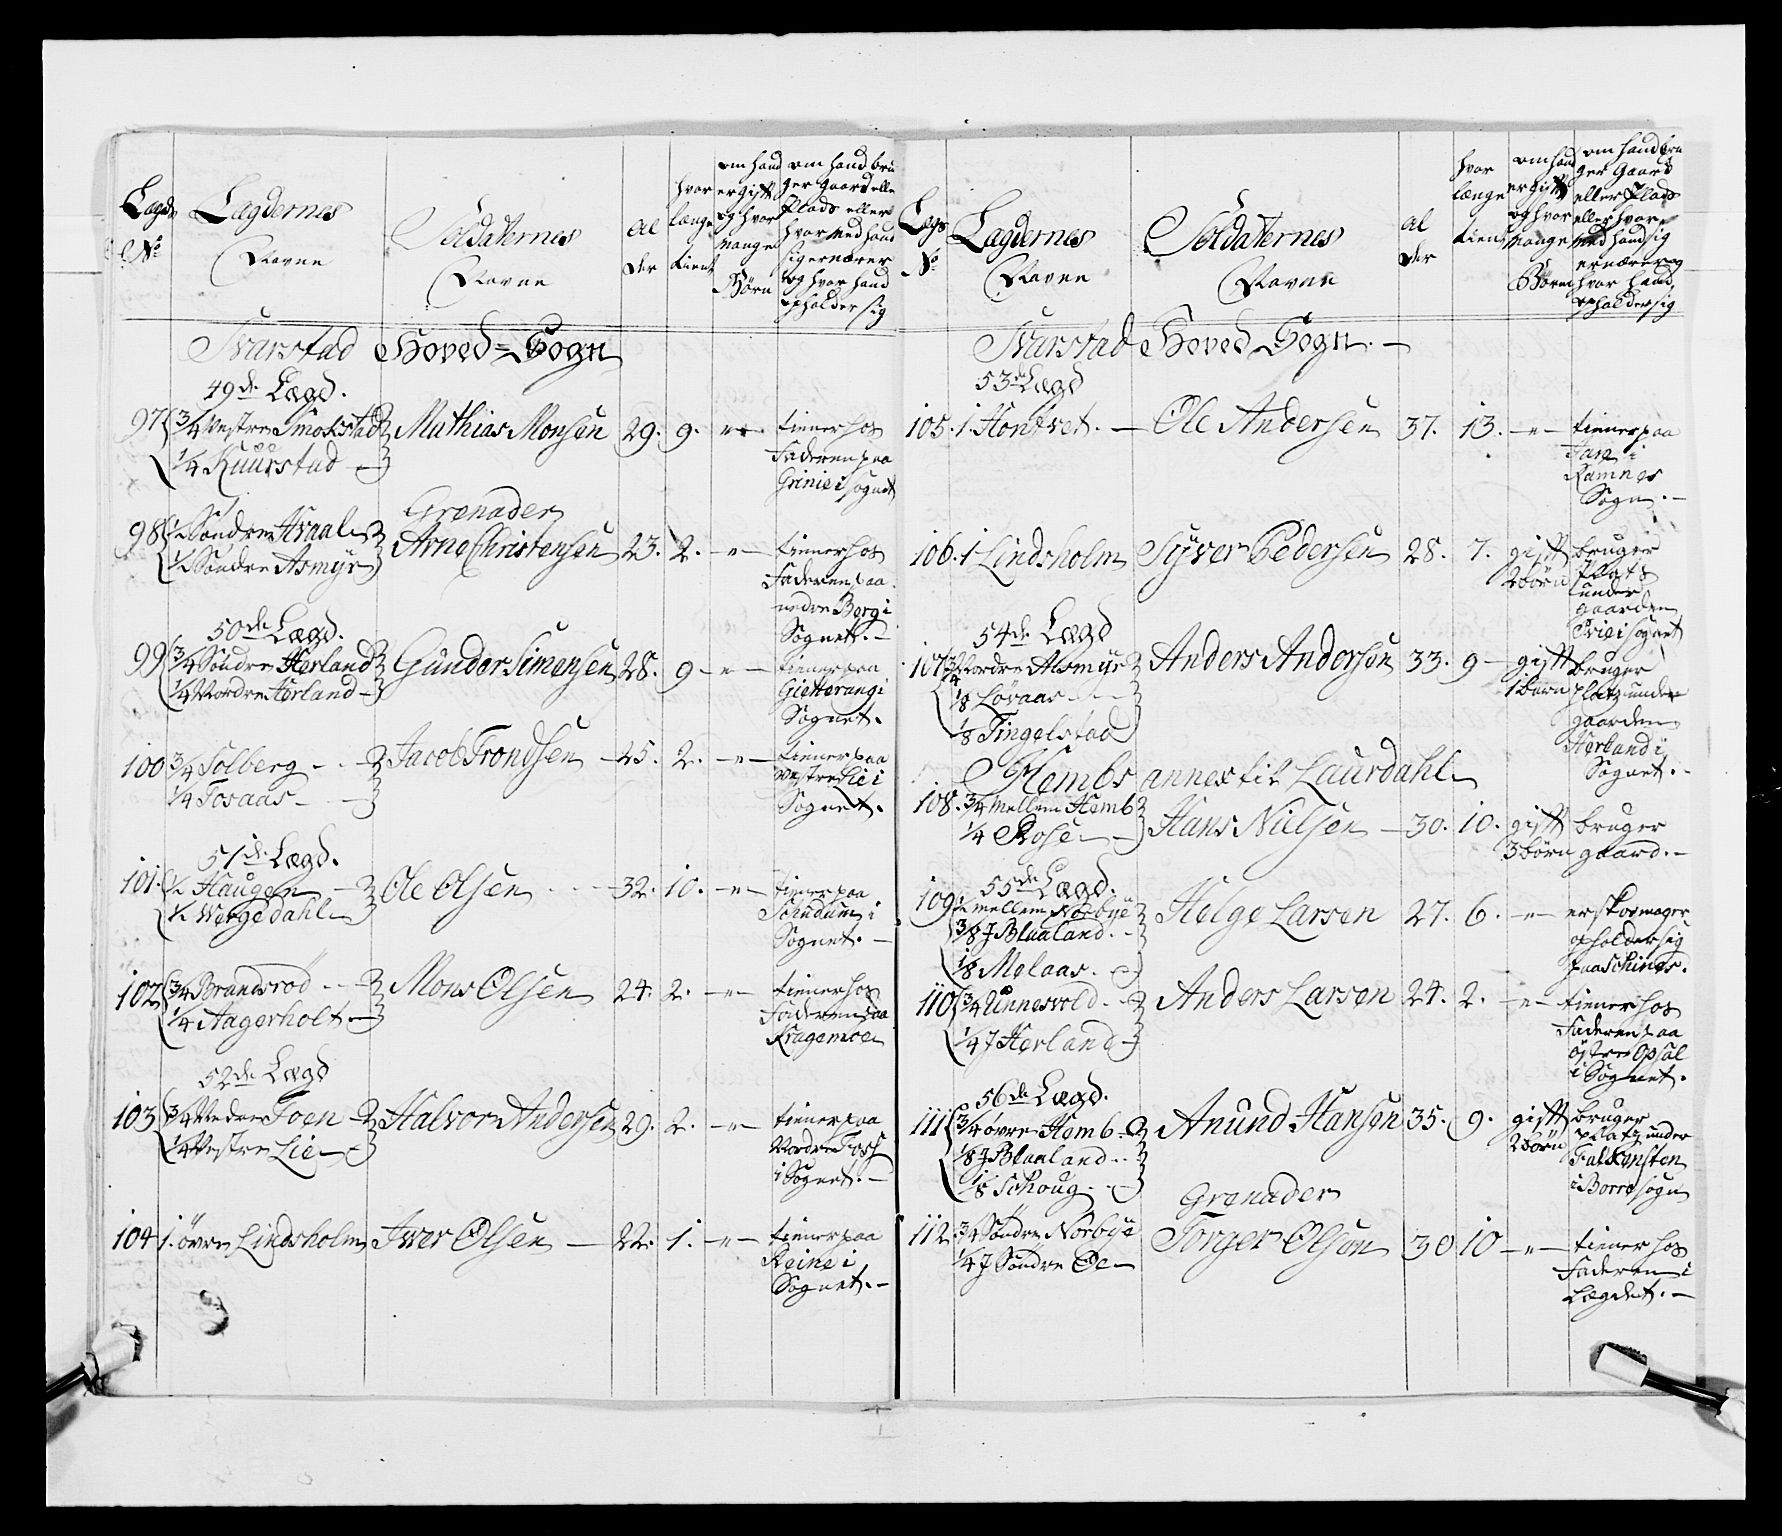 Lægds No | Lægdernes Navne | Soldaternes Navne | Al der | hvor længe tient | om hand er gift og hvor mange Børn | om hand bru ger gaard eller Plads eller hvor med hand sig ernærer og hvor hand opholder sig
Svarstad Hoved-Sogn
49de Lægd.
97 3/4 Vestre Smokstad Mathias Monsen 29. 9. -"- tiener hos
1/4 Ruurstad Faderen paa
Grinie i sognet
Grenader
98 1/2 Søndre Hvaal Arne Christensen 23. 2. -"- tiener hos
1/2 Søndre Asmyr Faderen paa
nedre Berg i
Sognet.
50de Lægd.
99 3/4 Søndre Herland Gunder Simensen 28. 9 -"- tiener paa
1/4 Nordre Herland Gietterang i
Sognet.
100 3/4 Solberg Jacob Trondsen 25. 2. -"- tiener paa
1/4 Fosaas Vestre Lie i
Sognet.
51de Lægd.
101. 1/2 Haugen Ole Olsen 32. 10. -"- tiener paa
1/2 Wergedahl Schudum i
Sognet.
102 3/4 Brandsrød Mons Olsen 24. 2. -"- tiener hos
1/4 Aagerholt Faderen paa
Kragemoen
52de Lægd
103 3/4 Nedre Foen Halvor Andersen 29. 2. -"- tiener paa
1/4 Vestre Lie Nordre Foss
i Sognet.
104 1. øvre Lindsholm Iver Olsen 22. 1. -"- tiener paa
Reine i
Sognet.
Lægds No | Lægdernes Navne | Soldaternes Navne | al der | hvor længe tient | om hand er gift og hvor mange Børn | om hand bru ger Gaard eller Plads eller hvor med hand sig ernærer og hvor hand opholder sig
Svarstad Hoved Sogn.
53de Lægd
105. 1 Hontvet. Ole Andersen 37. 13. -"- tiener paa
Fare i
Ramnes
Sogn.
106. 1 Lindsholm Syver Pedersen 28. 7. gift bruger
2 børn Plats
under
gaarden
Prie i sognet
54de Lægd
107 3/4 Nordre Asmyr Anders Andersen 33. 9 gift bruger
1 barn platz under
1/8 Løvaas gaarden
1/8 Fingelstad Herland i
Sognet.
Hembs annex til Laurdahl
108. 3/4 Mellem Hemb Hans Nielsen 30. 10. gift bruger
1/4 Rosen 3 børn gaard.
55de Lægd.
109 1/2 mellem Norbye Helge Larsen 27. 6. -"- er skomager
3/8 J Blaaland. opholder sig
1/8 Melaas. paa Schines.
110 3/4 Unnesvold Anders Larsen 24. 2. -"- tiener hos
1/4 J Herland Faderen paa
østre Opsal
i Sognet.
56de Lægd.
111 3/4 øvre Hemb Anund Hansen 35. 9. gift bruger
1/8 J Blaaland 2 børn platz under
1/8 Schoug Falkensten
i Borre sogn
Grenader
112. 3/4 Søndre Norbye Torger Olsen 30 10 -"- tiener hos
1/4 J Søndre Øe Faderen i
Lægdet.